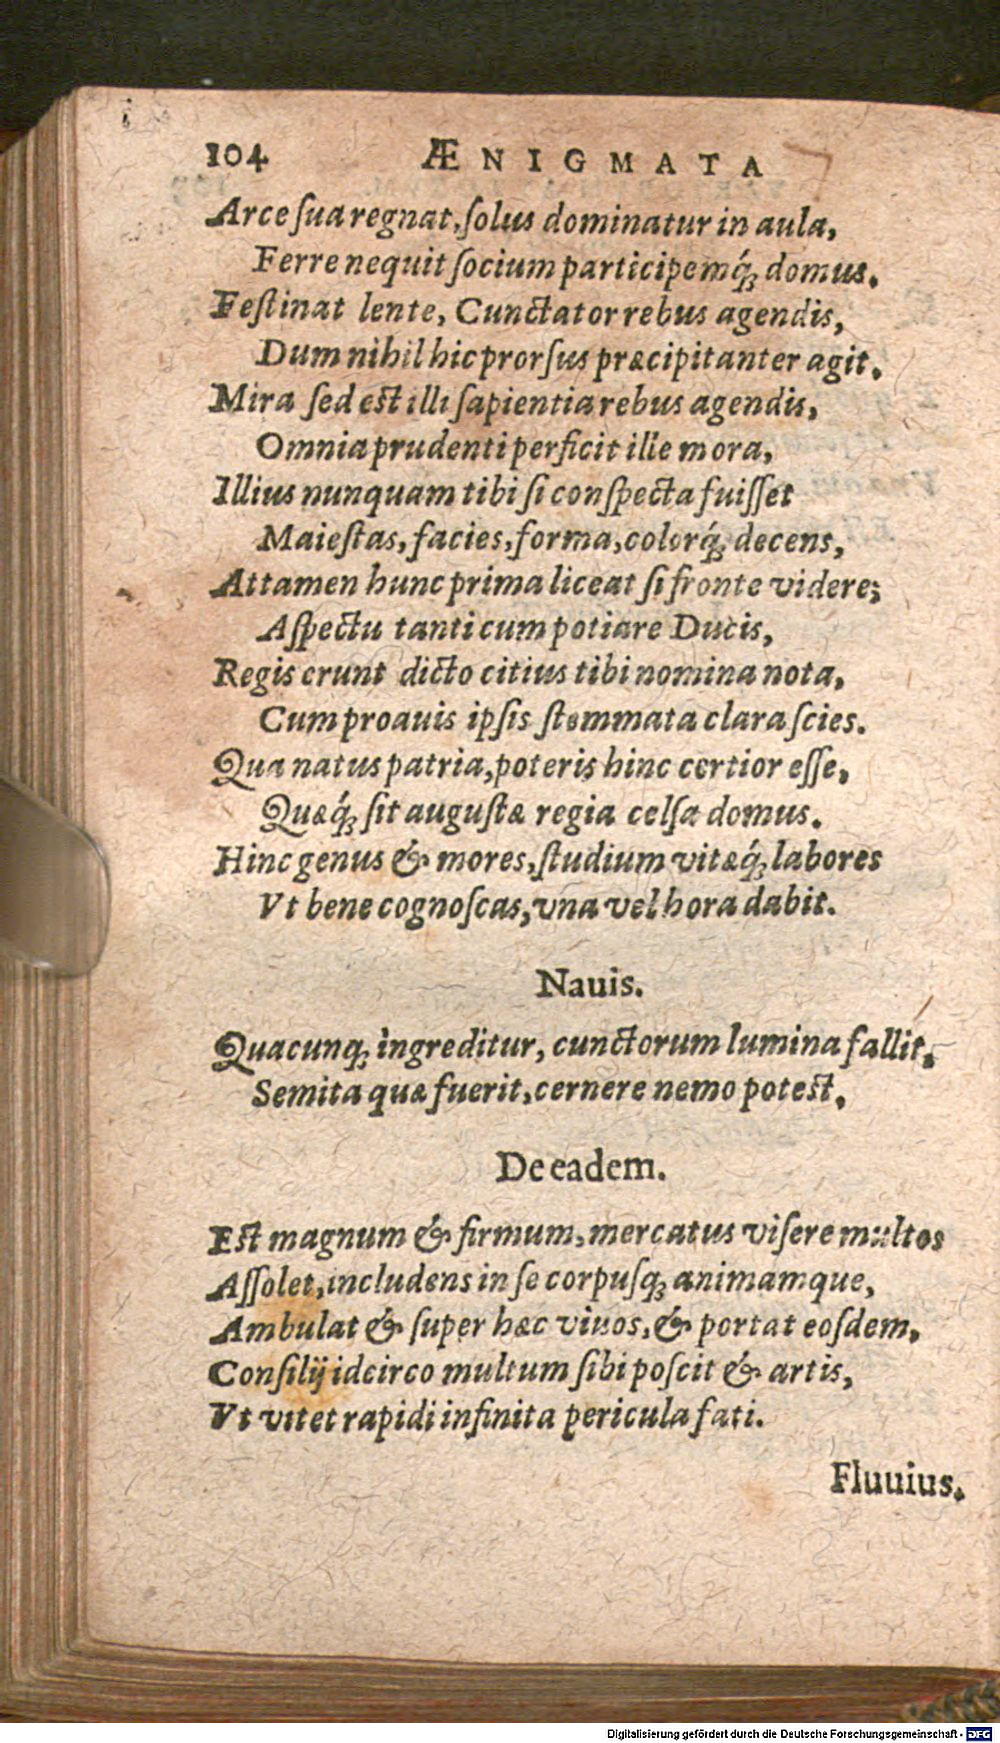 104 ÆNIGMATA
Arce ſua regnat, ſolus dominatur in aula,
Ferre nequit ſocium participemq́; domus.
Feſtinat lente, Cunctator rebus agendis,
Dum nihil hic prorſus præcipitanter agit.
Mira ſed eſt illi ſapientia rebus agendis,
Omnia prudenti perficit ille mora,
Illius nunquam tibi ſi conſpecta fuiſſet
Maieſtas, facies, forma, colorq́; decens,
Attamen hunc prima liceat ſi fronte videre;
Aſpectu tanti cum potiare Ducis,
Regis erunt dicto citius tibi nomina nota,
Cum proauis ipſis ſtemmata clara ſcies.
Qua natus patria, poteris hinc certior eſſe,
Quæq́; ſit auguſtæ regia celſa domus.
Hinc genus & mores, ſtudium vitæq́; labores
Vt bene cognoſcas, vna vel hora dabit.
Nauis.
Quacunq; ingreditur, cunctorum lumina fallit,
Semita quæ fuerit, cernere nemo poteſt,
De eadem.
Eſt magnum & firmum, mercatus viſere multos
Aſſolet, includens in ſe corpuſq; animamque,
Ambulat & ſuper hæc viuos, & portat eoſdem,
Conſilij idcirco multum ſibi poſcit & artis,
Vt vitet rapidi infinita pericula fati.
Fluuius.
Digitalisierung gefördert durch die Deutsche Forschungsgemeinschaft - DFG